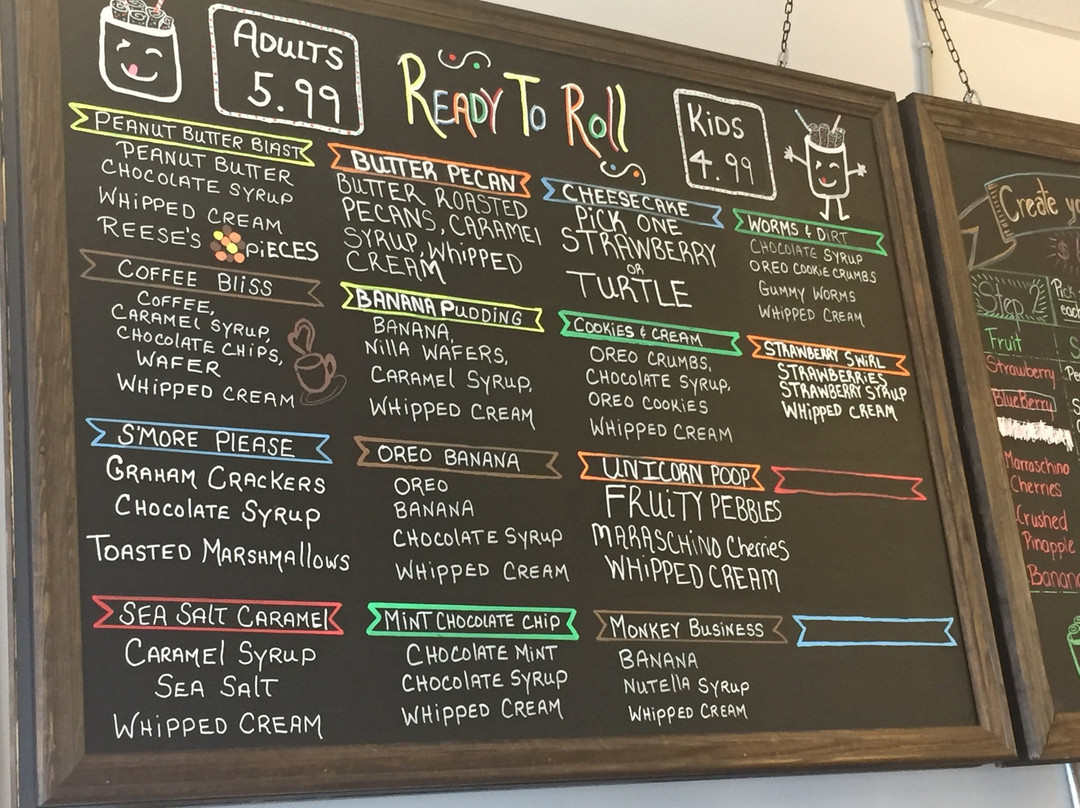 ADULTS
5.99
READY TO ROLL
KIDS
4.99
PEANUT BUTTER BLAST
PEANUT BUTTER
CHOCOLATE SYRUP
WHIPPED CREAM
REESE'S PIECES
COFFEE BLISS
COFFEE,
CARAMEL SYRUP,
CHOCOLATE CHIPS,
WAFER
WHIPPED CREAM
S'MORE PLEASE
GRAHAM CRACKERS
CHOCOLATE SYRUP
TOASTED MARSHMALLOWS
SEA SALT CARAMEL
CARAMEL SYRUP
SEA SALT
WHIPPED CREAM
BUTTER PECAN
BUTTER ROASTED
PECANS, CARAMEL
SYRUP, WHIPPED
CREAM
BANANA PUDDING
BANANA,
NILLA WAFERS,
CARAMEL SYRUP,
WHIPPED CREAM
OREO BANANA
OREO
BANANA
CHOCOLATE SYRUP
WHIPPED CREAM
MINT CHOCOLATE CHIP
CHOCOLATE MINT
CHOCOLATE SYRUP
WHIPPED CREAM
CHEESECAKE
PICK ONE
STRAWBERRY
OR
TURTLE
COOKIES & CREAM
OREO CRUMBS,
CHOCOLATE SYRUP,
OREO COOKIES
WHIPPED CREAM
UNICORN POOP
FRUITY PEBBLES
MARASCHINO Cherries
WHIPPED CREAM
MONKEY BUSINESS
BANANA
NUTELLA SYRUP
WHIPPED CREAM
WORMS & DIRT
CHOCOLATE SYRUP
OREO COOKIE CRUMBS
GUMMY WORMS
WHIPPED CREAM
STRAWBERRY SWIRL
STRAWBERRIES
STRAWBERRY SYRUP
WHIPPED CREAM
Create
Step 2
Pick
Fruit
Strawberry
BlueBerry
Marraschino
Cherries
Crushed
Pinapple
Banana